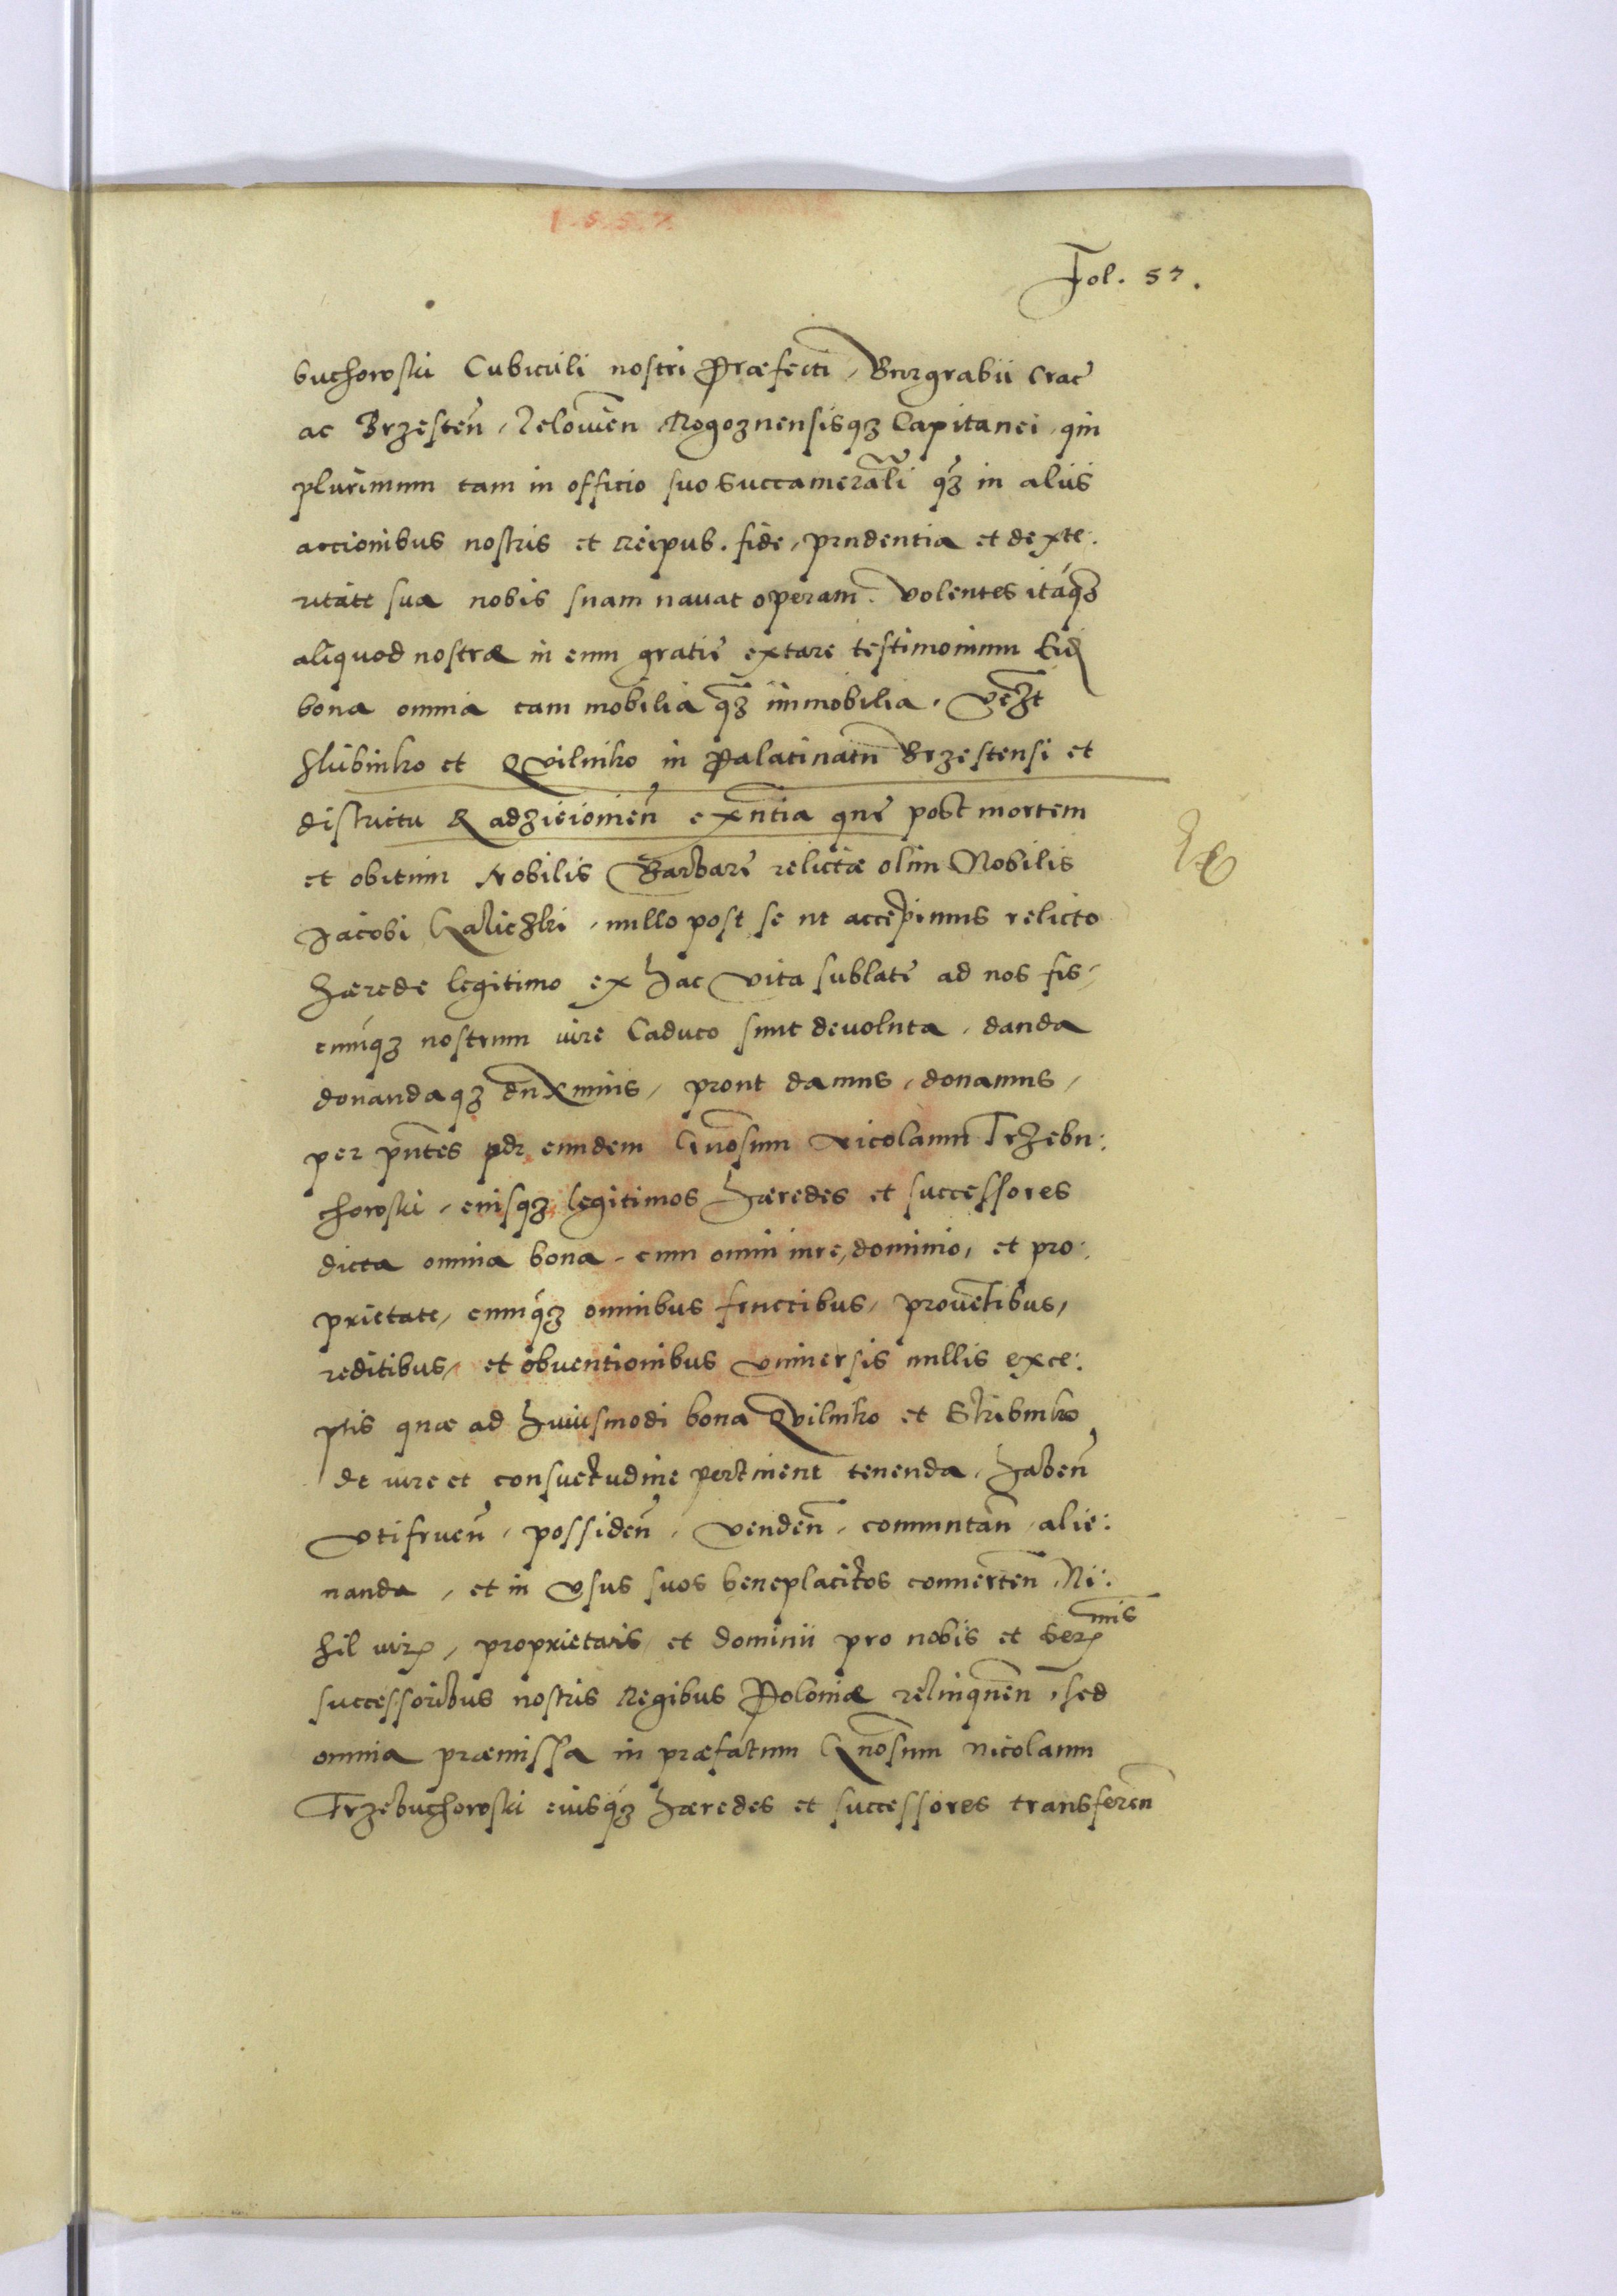 1.5.5.7
Fol. 57.
buchowski Cubiculi nostri Præfecti, Burgrabii Crac̃
ac Brzesteñ, Kelowieñ Rogoznensisqȝ Capitanei, qui
plurimum tam in officio suo Succamerãli q̃ȝ in aliis
accionibus nostris et Reipub. fide, prudentia et dexte:
ritate sua nobis suam nauat operam. Volentes itáqȝ
aliquod nostræ in eum gratię extare testimonium Eid
bona omnia tam mobilia q̃ȝ immobilia, vc̃ȝt
Slubinko et Qvilniko in Palatinatu Brzestensi et
districtu Radzieiomieñ exñtia quę post mortem
et obitum Nobilis Barbarę relictæ olim Nobilis
Jacobi Kaliczki, nullo post se ut accepimus relicto
hærede legitimo ex hac vita sublatę ad nos fis,
cumqȝ nostrum iure Caduco sunt deuoluta, danda
donandaqȝ duximus, prout damus, donamus,
per pñtes pdr eundem Gñosum Nicolaum Trzebu:
chowski, eiusqȝ legitimos hæredes et successores
dicta omnia bona, cum omni iure, dominio, et pro:
prietate, cumq́ȝ omnibus fructibus, prouentibus,
reditibus, et obuentionibus vniuersis nullis exce:
ptis quæ ad huiusmodi bona Qvilniko et Skibniko
de iure et consuetudine pertinent tenenda, habeñ
vtifrueñ, possideñ, vendeñ, commutañ, alie:
nanda, et in vsus suos beneplacitos conuerteñ. Ni:
hil iuris, proprietatis et dominii pro nobis et Sermis
successoribus nostris Regibus Poloniæ relinqueñ, sed
omnia præmissa in præfatum Gñosum Nicolaum
Trzebuchowski eiusq́ȝ hæredes et successores transfereñ